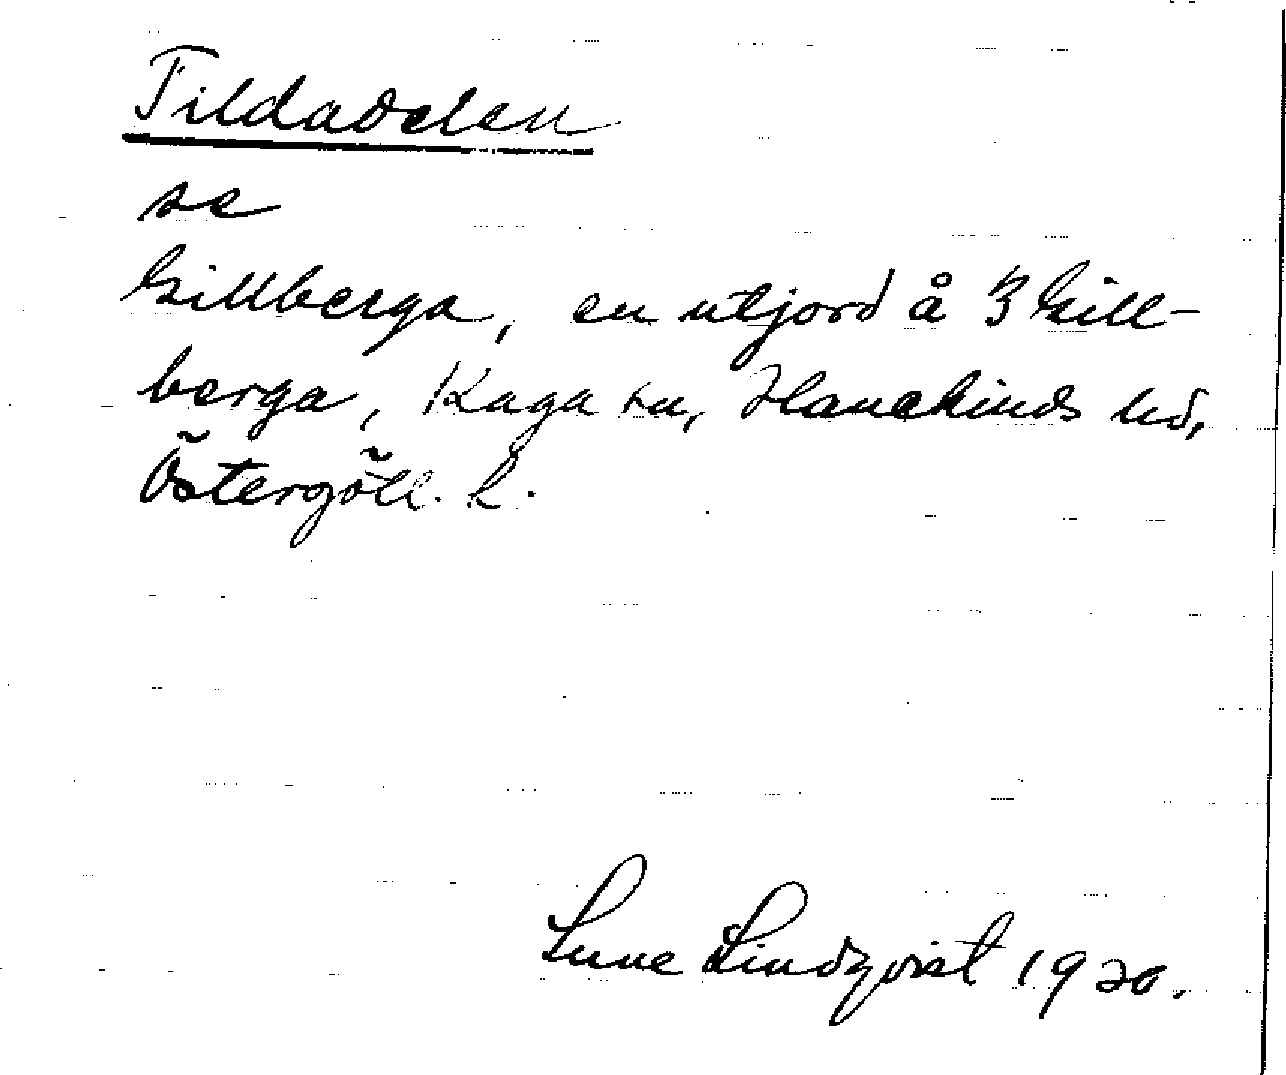 Tildadelen
se
Gillberga, en utjord å 3 Gill-
berga, Kaga sn, Hanekinds hd,
Östergötl. l.
Sune Lindqvist 1920.